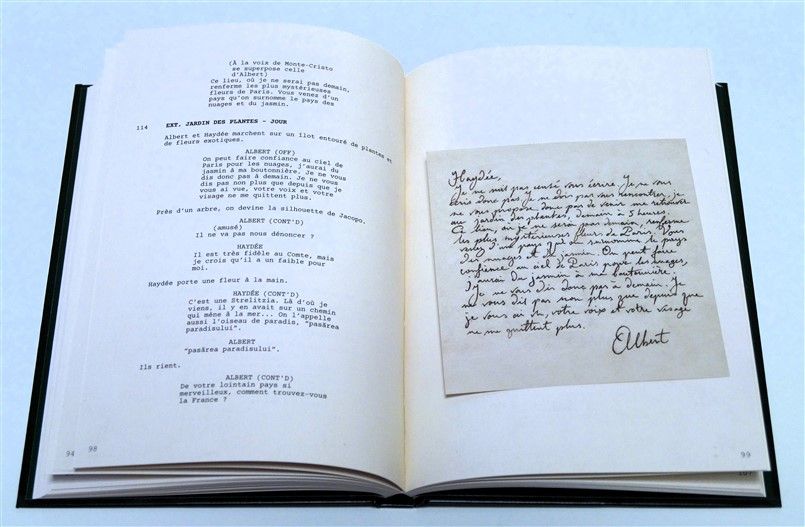 (À la voix de Monte-Cristo
se superpose celle
d'Albert)
Ce lieu, où je ne serai pas demain,
renferme les plus mystérieuses
fleurs de Paris. Vous venez d'un
pays qu'on surnomme le pays des
nuages et du jasmin.
114 EXT. JARDIN DES PLANTES - JOUR
Albert et Haydée marchent sur un îlot entouré de plantes et
de fleurs exotiques.
ALBERT (OFF)
On peut faire confiance au ciel de
Paris pour les nuages, j'aurai du
jasmin à ma boutonnière. Je ne vous
dis donc pas à demain. Je ne vous
dis pas non plus que depuis que je
vous ai vue, votre voix et votre
visage ne me quittent plus.
Près d'un arbre, on devine la silhouette de Jacopo.
ALBERT (CONT'D)
(amusé)
Il ne va pas nous dénoncer ?
HAYDÉE
Il est très fidèle au Comte, mais
je crois qu'il a un faible pour
moi.
Haydée porte une fleur à la main.
HAYDÉE (CONT'D)
C'est une Strelitzia. Là d'où je
viens, il y en avait sur un chemin
qui mène à la mer... On l'appelle
aussi l'oiseau de paradis, "pasărea
paradisului".
ALBERT
"pasărea paradisului".
Ils rient.
ALBERT (CONT'D)
De votre lointain pays si
merveilleux, comment trouvez-vous
la France ?
94 98
Haydée,
Je ne suis pas censé vous écrire. Je ne vous
écris donc pas. Je ne dois pas vous rencontrer, je
ne vous propose donc pas de venir me retrouver
au jardin des plantes, demain à 5 heures.
Ce lieu, où je ne serai pas demain, renferme
les plus mystérieuses fleurs de Paris. Vous
venez d'un pays qu'on surnomme le pays
des nuages et du jasmin. On peut faire
confiance au ciel de Paris pour les nuages,
J'aurai du jasmin à ma boutonnière.
Je ne vous dis donc pas à demain. Je
ne vous dis pas non plus que depuis que
je vous ai vu, votre voix et votre visage
ne me quittent plus.
Albert
99